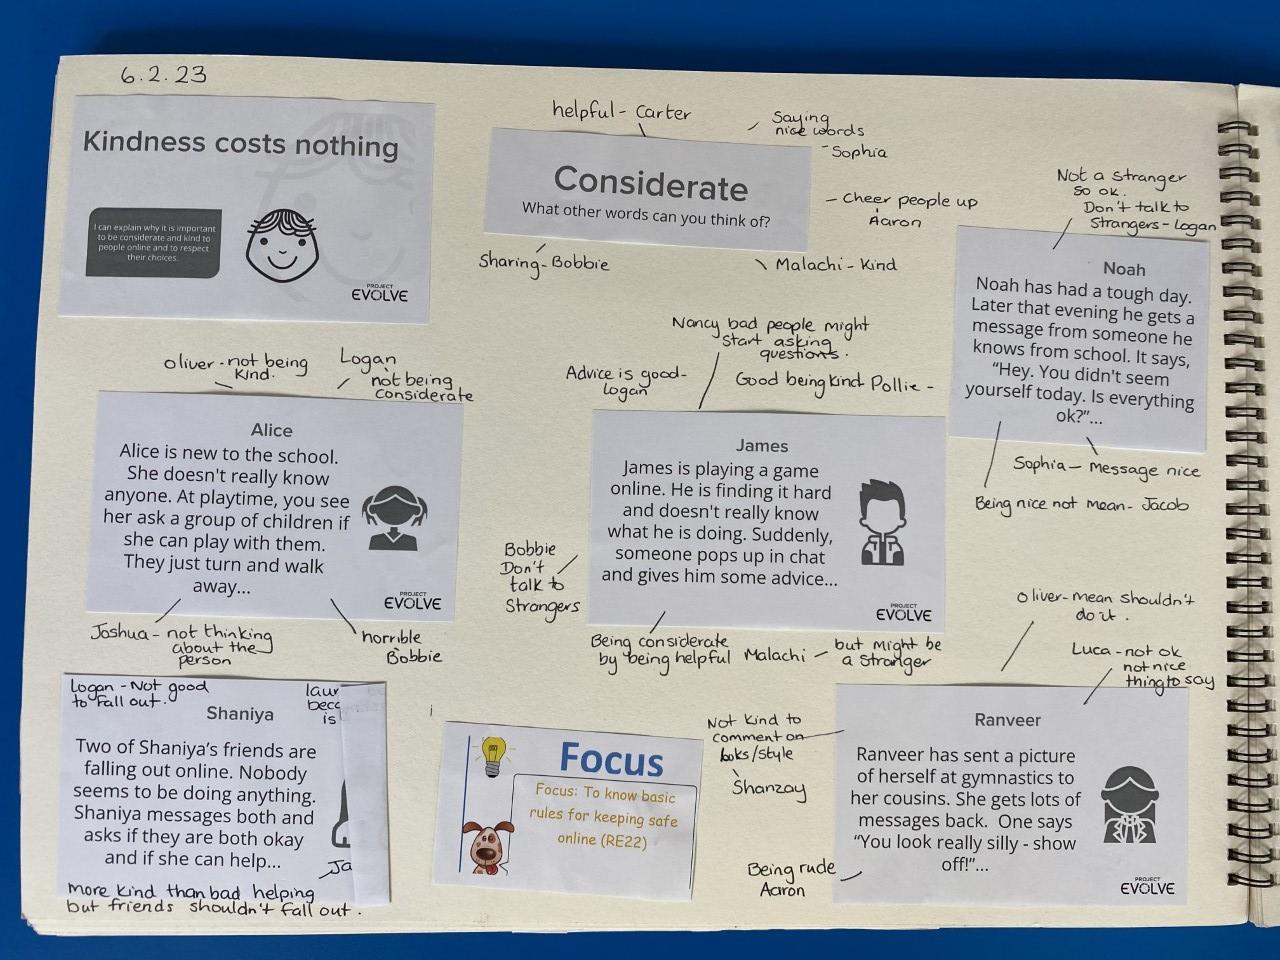 6.2.23
Kindness costs nothing
I can explain why it is important
to be considerate and kind to
people online and to respect
their choices.
PROJECT
EVOLVE
helpful - Carter
Saying
nice words
- Sophia
Considerate
What other words can you think of?
- Cheer people up
Aaron
Sharing - Bobbie
Malachi - Kind
Not a stranger
so ok.
Don't talk to
Strangers - Logan
Noah
Noah has had a tough day.
Later that evening he gets a
message from someone he
knows from school. It says,
"Hey. You didn't seem
yourself today. Is everything
ok?"...
Sophia - Message nice
Being nice not mean - Jacob
oliver - not being
Kind.
Logan
not being
considerate
Alice
Alice is new to the school.
She doesn't really know
anyone. At playtime, you see
her ask a group of children if
she can play with them.
They just turn and walk
away...
PROJECT
EVOLVE
Joshua - not thinking
about the
person
horrible
Bobbie
Nancy bad people might
start asking
questions.
Advice is good -
Logan
Good being kind Pollie -
James
James is playing a game
online. He is finding it hard
and doesn't really know
what he is doing. Suddenly,
someone pops up in chat
and gives him some advice...
PROJECT
EVOLVE
Bobbie
Don't
talk to
Strangers
Being considerate
by being helpful
Malachi - but might be
a stranger
Logan - Not good
to fall out.
Shaniya
Two of Shaniya's friends are
falling out online. Nobody
seems to be doing anything.
Shaniya messages both and
asks if they are both okay
and if she can help...
more kind than bad helping
but friends shouldn't fall out.
Focus
Focus: To know basic
rules for keeping safe
online (RE22)
oliver - mean shouldn't
do it.
Luca - not ok
not nice
thing to say
Not kind to
comment on
looks/style
Shanzay
Ranveer
Ranveer has sent a picture
of herself at gymnastics to
her cousins. She gets lots of
messages back. One says
"You look really silly - show
off!"...
PROJECT
EVOLVE
Being rude
Aaron